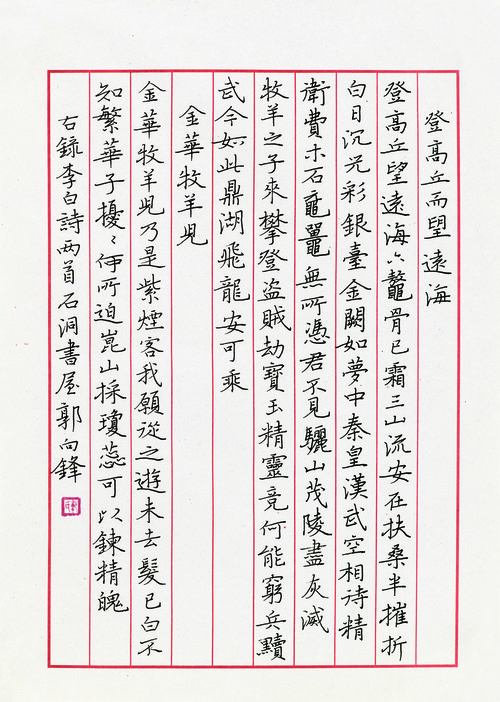 登高丘而望遠海
登高丘望遠海六鼇骨已霜三山流安在扶桑半摧折
白日沉光彩銀臺金闕如夢中秦皇漢武空相待精
衛費木石黿鼉無所憑君不見驪山茂陵盡灰滅
牧羊之子來攀登盜賊劫寶玉精靈竟何能窮兵黷
武今如此鼎湖飛龍安可乘
金華牧羊兒
金華牧羊兒乃是紫煙客我願從之遊未去髮已白不
知繁華子擾〻何所迫崑山採瓊蕊可以鍊精魄
右錄李白詩两首石洞書屋郭向鋒